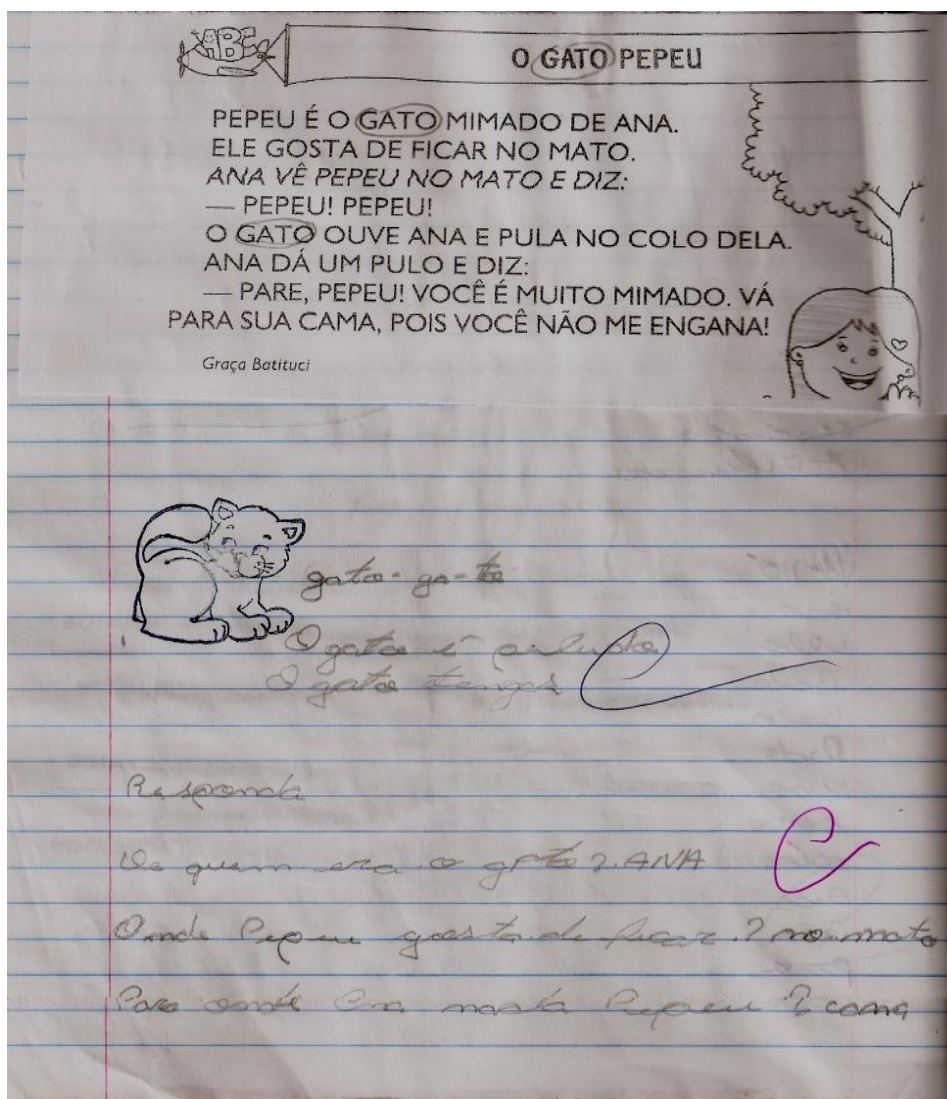 ABC
O GATO PEPEU
PEPEU É O GATO MIMADO DE ANA.
ELE GOSTA DE FICAR NO MATO.
ANA VÊ PEPEU NO MATO E DIZ:
— PEPEU! PEPEU!
O GATO OUVE ANA E PULA NO COLO DELA.
ANA DÁ UM PULO E DIZ:
— PARE, PEPEU! VOCÊ É MUITO MIMADO. VÁ
PARA SUA CAMA, POIS VOCÊ NÃO ME ENGANA!
Graça Batituci
gato - ga-to
O gato é peludo
O gato
Responda
De quem era o gato? ANA
Onde Pepeu gosta de ficar? no mato
Para onde Ana manda Pepeu? cama